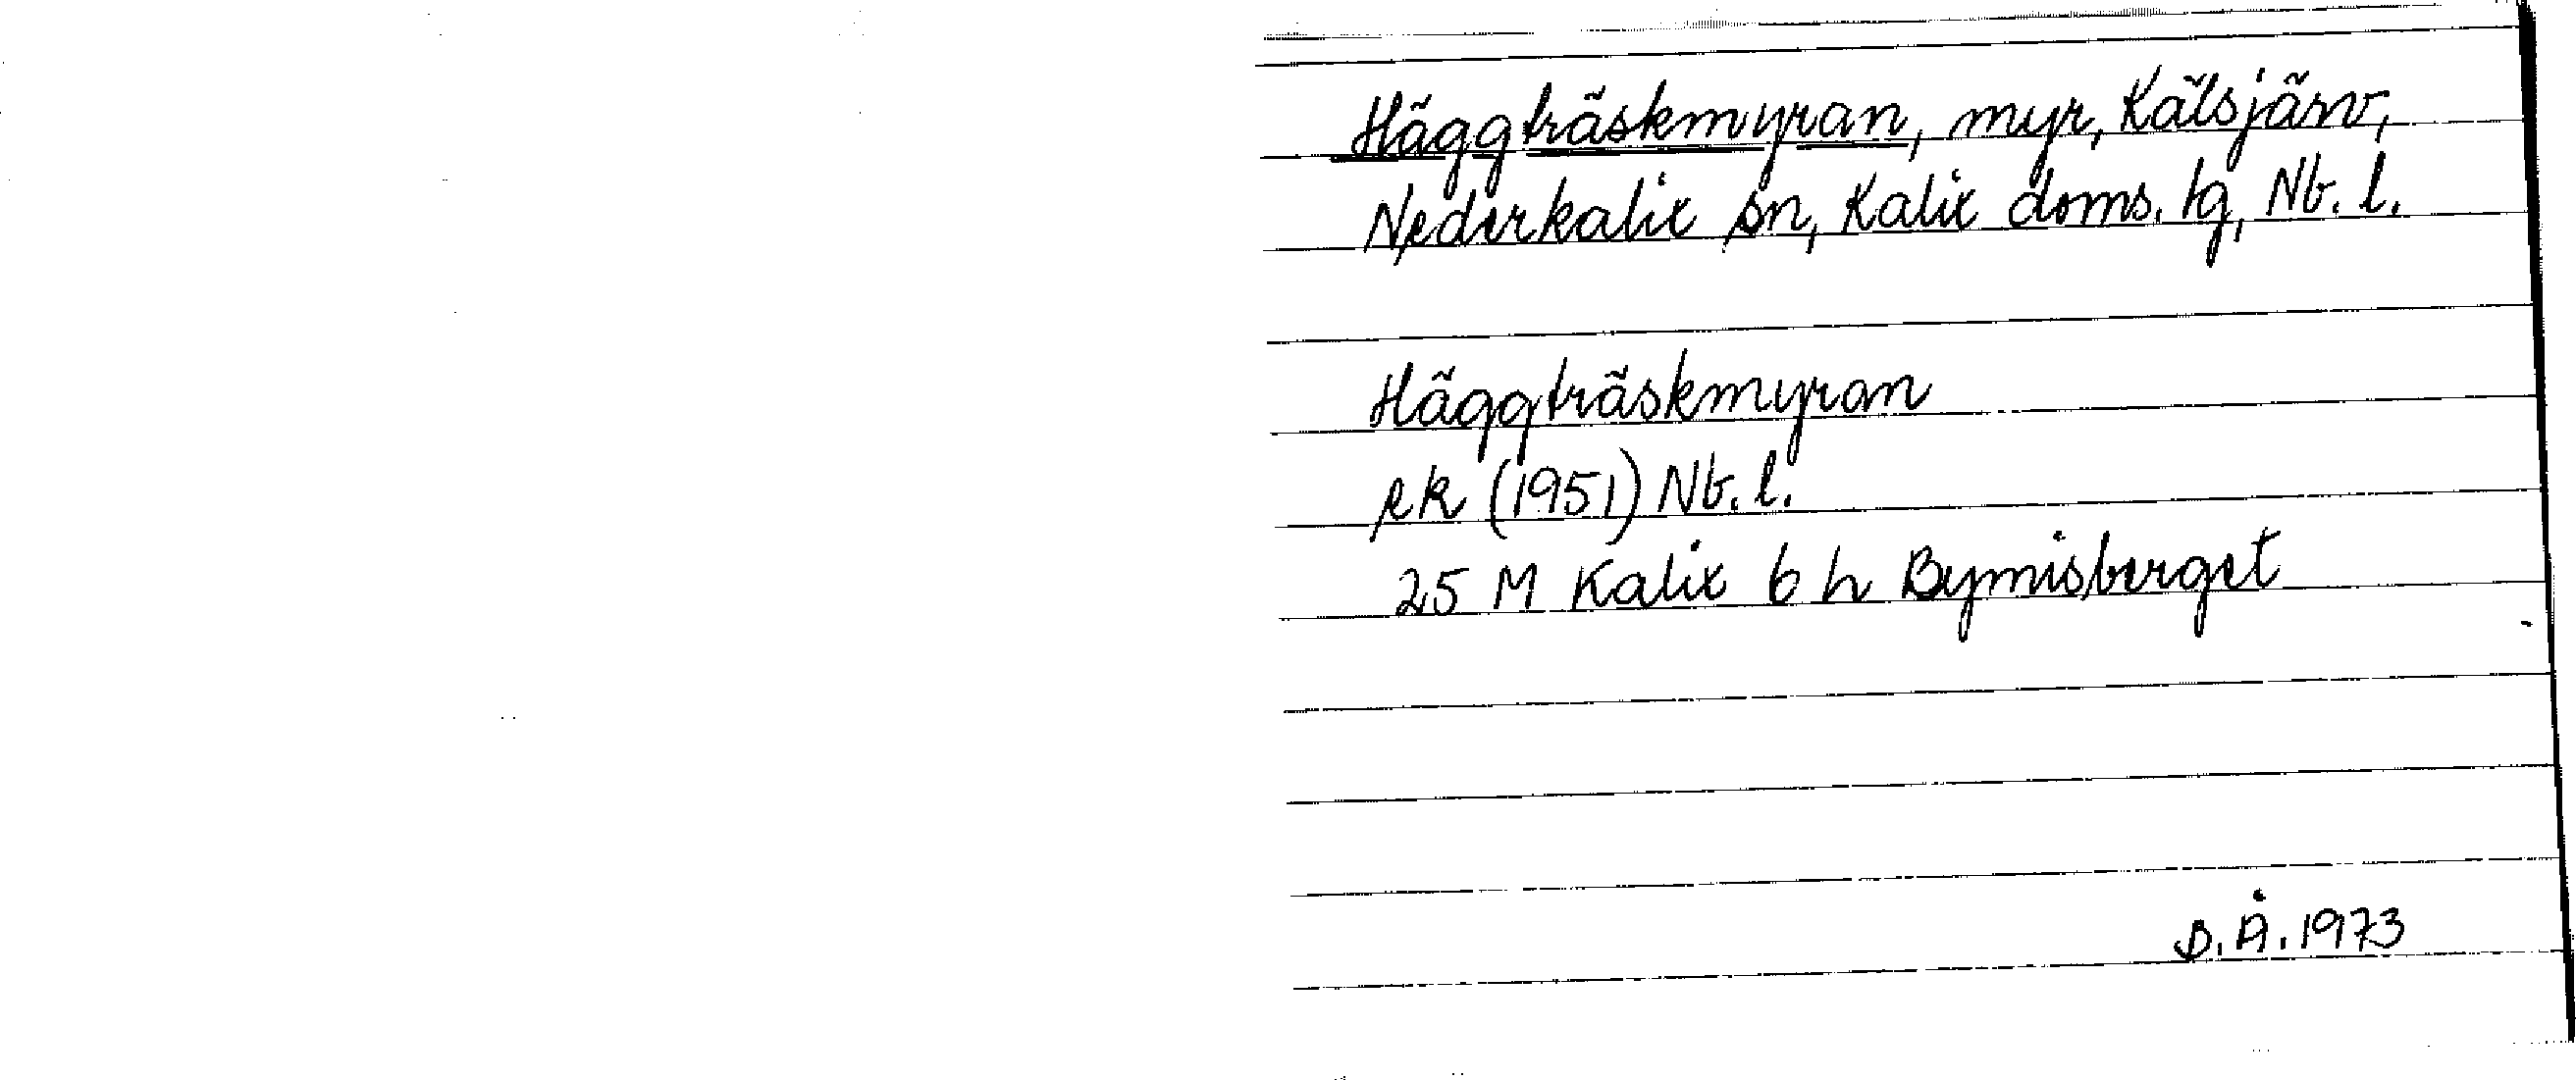 Häggträskmyran, myr, Kälsjärv,
Nederkalix sn, Kalix doms. lg, Nb. l.
Häggträskmyran
ek (1951) Nb. l.
25 M Kalix 6 h Bymisberget
B. Å. 1973